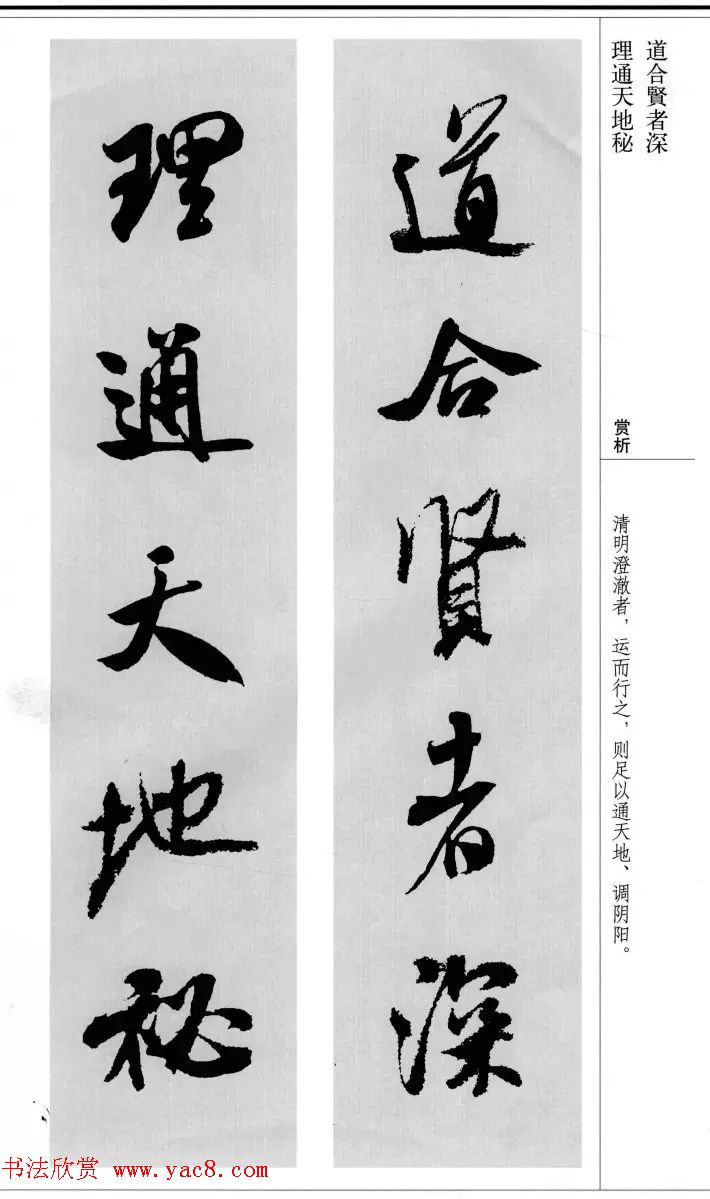 道合賢者深
理通天地秘
道合賢者深
理通天地秘
赏析
清明澄澈者，运而行之，则足以通天地、调阴阳。
书法欣赏 www.yac8.com